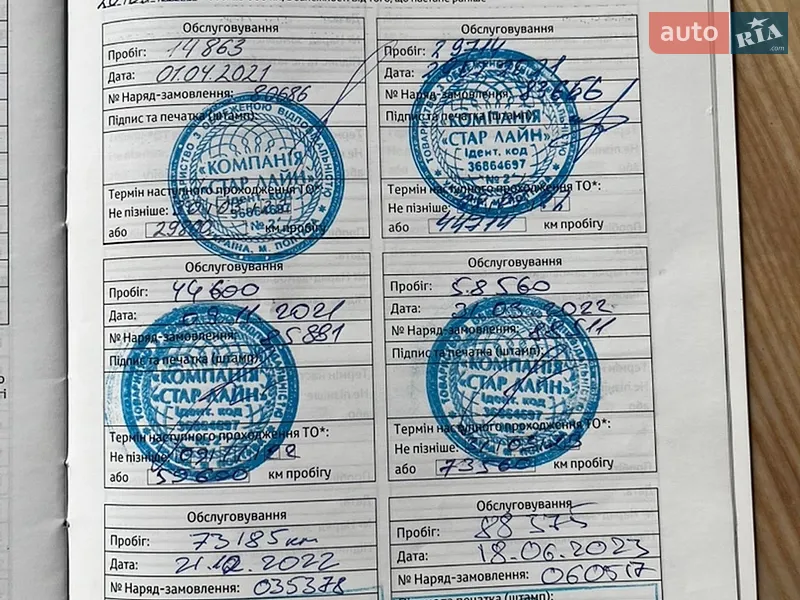 auto RIA .com
Обслуговування
Пробіг: 14863
Дата: 01.04.2021
№ Наряд-замовлення: 80686
Підпис та печатка (штамп):
«КОМПАНІЯ
СТАР ЛАЙН»
Ідент. код
36864697
№
УКРАЇНА, М. ПОЛТАВА
Термін наступного проходження ТО*:
Не пізніше:
або км пробігу
Обслуговування
Пробіг: 29714
Дата:
№ Наряд-замовлення: 83666
Підпис та печатка
КОМПАНІЯ
«СТАР ЛАЙН»
Ідент. код
36864697
№ 2
Термін наступного проходження ТО*:
Не пізніше:
або 44714 км пробігу
Обслуговування
Пробіг: 44600
Дата: 09.11.2021
№ Наряд-замовлення: 85881
Підпис та печатка (штамп):
«КОМПАНІЯ
«СТАР ЛАЙН»
Ідент. код
36864697
Термін наступного проходження ТО*:
Не пізніше:
або 59600 км пробігу
Обслуговування
Пробіг: 58560
Дата: 03.2022
№ Наряд-замовлення: 88511
Підпис та печатка (штамп):
«КОМПАНІЯ
«СТАР ЛАЙН»
Ідент. код
36864697
Термін наступного проходження ТО*:
Не пізніше:
або 73560 км пробігу
Обслуговування
Пробіг: 73185 км
Дата: 21.12.2022
№ Наряд-замовлення: 035378
Обслуговування
Пробіг: 88375
Дата: 18.06.2023
№ Наряд-замовлення: 060517